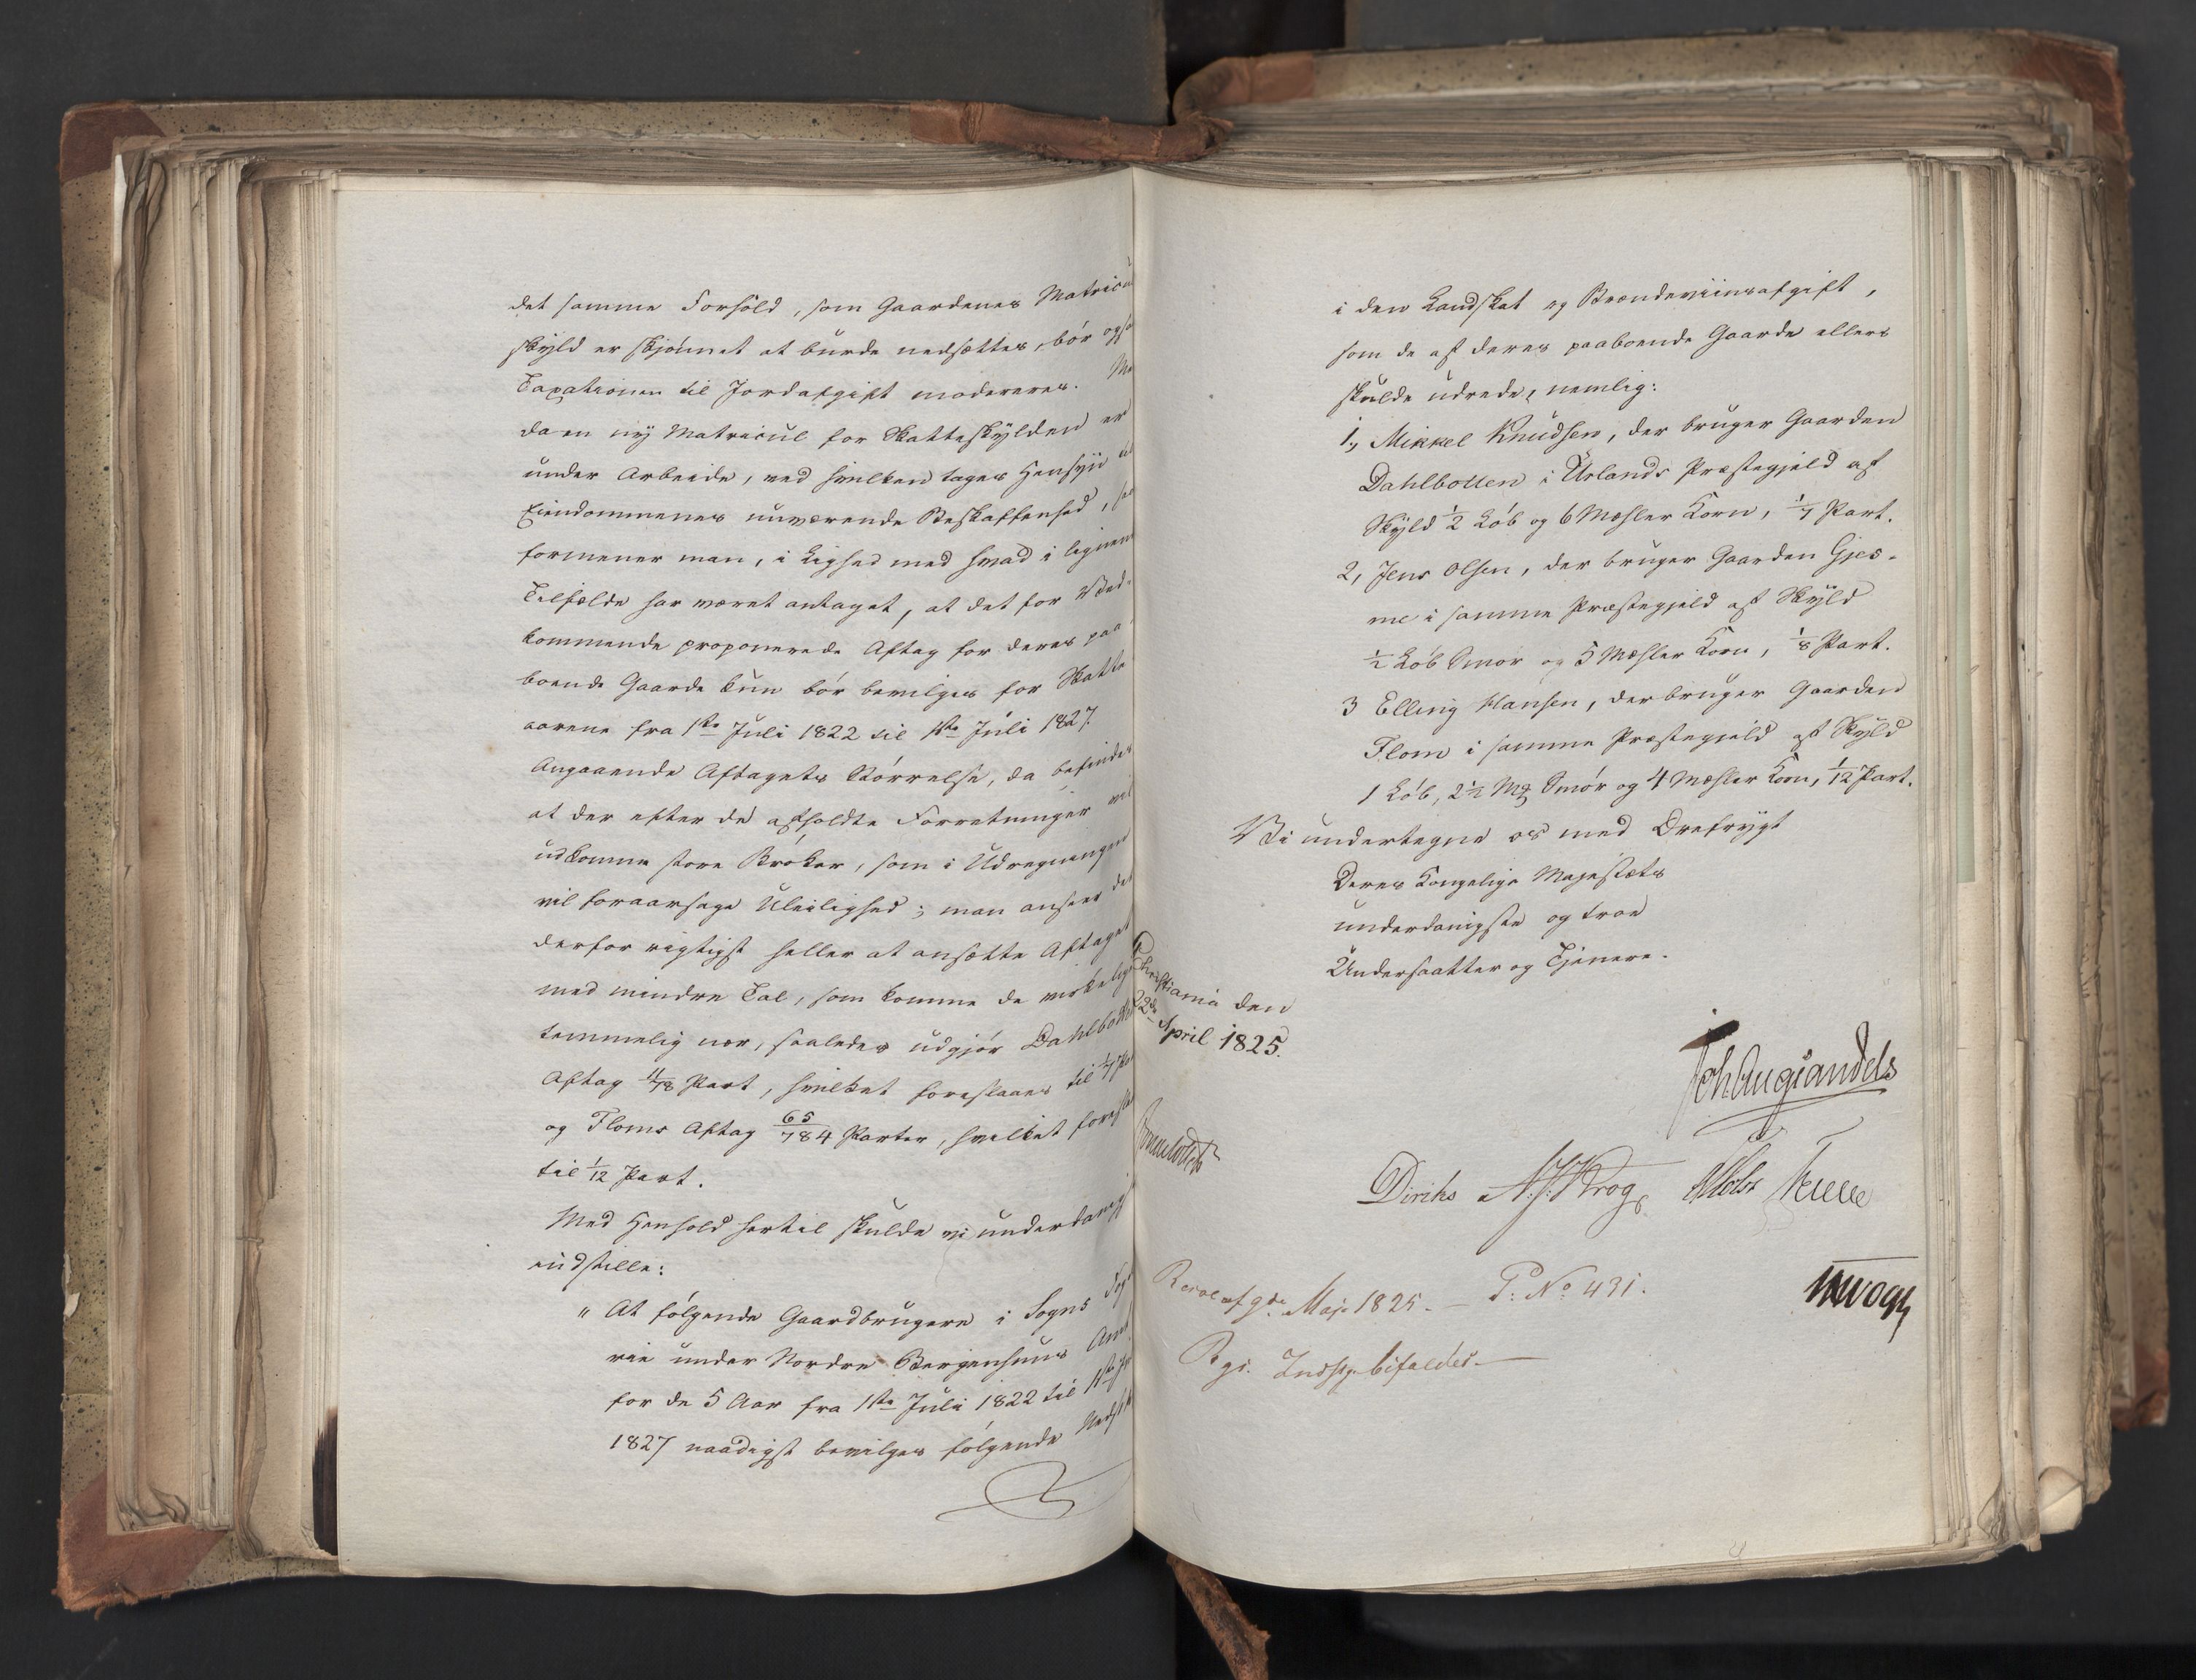 det samme Forhold, som Gaardenes Matricu
skyld er skjønnet at burde nedsættes, bør ogsa
Taxationen til Jordafgift modereres.
da en ny Matricul for Skatteskylden er
under Arbeide, ved hvilken tages Hensyn til
Eiendommenes nuværende Beskaffenhed,
formener man, i Lighed med hvad i lignen
Tilfælde har været antaget, at det for Ved-
kommende proponerede Aftag for deres paa
boende Gaarde kun bør bevilges for Skatte
aarene fra 1ste Juli 1822 til 1ste Juli 1827.
Angaaende Aftagets Størrelse, da befindes
at der efter de afholdte Forretninger vil
udkomme store Brøker, som i Udregningen
vil foraarsage Uleilighed; man anseer det
derfor rigtigst heller at ansætte Aftaget
med mindre Tal, som komme de virkelige
temmelig nær, saaledes udgjør Dahlbotten
Aftag 11/78 Part, hvilket foreslaaes til 1/7 Par
og Floms Aftag 65/784 Parter, hvilket foresla
til 1/12 Part.
Med Henhold hertil skulde vi underdanigst
indstille:
" At følgende Gaardbrugere i Sogns Fog
rie under Nordre Bergenhuus Amt
for de 5 Aar fra 1ste Juli 1822 til 1ste Ju
1827 naadigst bevilges følgende Neds
i den Landskat og Brændeviinsafgift,
som de af deres paaboende Gaarde ellers
skulde udrede, nemlig:
1, Mikkel Knudsen, der bruger Gaarden
Dahlbotten i Urlands Præstegjeld af
Skyld 1/2 Løb og 6 Mæhler Korn, 1/7 Part.
2, Jens Olsen, der bruger Gaarden Gjes-
me i samme Præstegjeld af Skyld
1/2 Løb Smør og 5 Mæhler Korn, 1/8 Part.
3 Elling Hansen, der bruger Gaarden
Flom i samme Præstegjeld af Skyld
1 Løb, 2 1/2 Mk Smør og 4 Mæhler Korn, 1/12 Part.
Vi undertegne os med Ærefrygt
Deres Kongelige Majestæts
underdanigste og troe
Undersaatter og Tjenere.
Christiania den
22de April 1825.
Joh Aug Sandels
Sommerhielm
Diriks A. J. Krog Holst
Resol. af 9de Maji 1825. — P: No 431.
Rgs. Indst. bifaldes. —